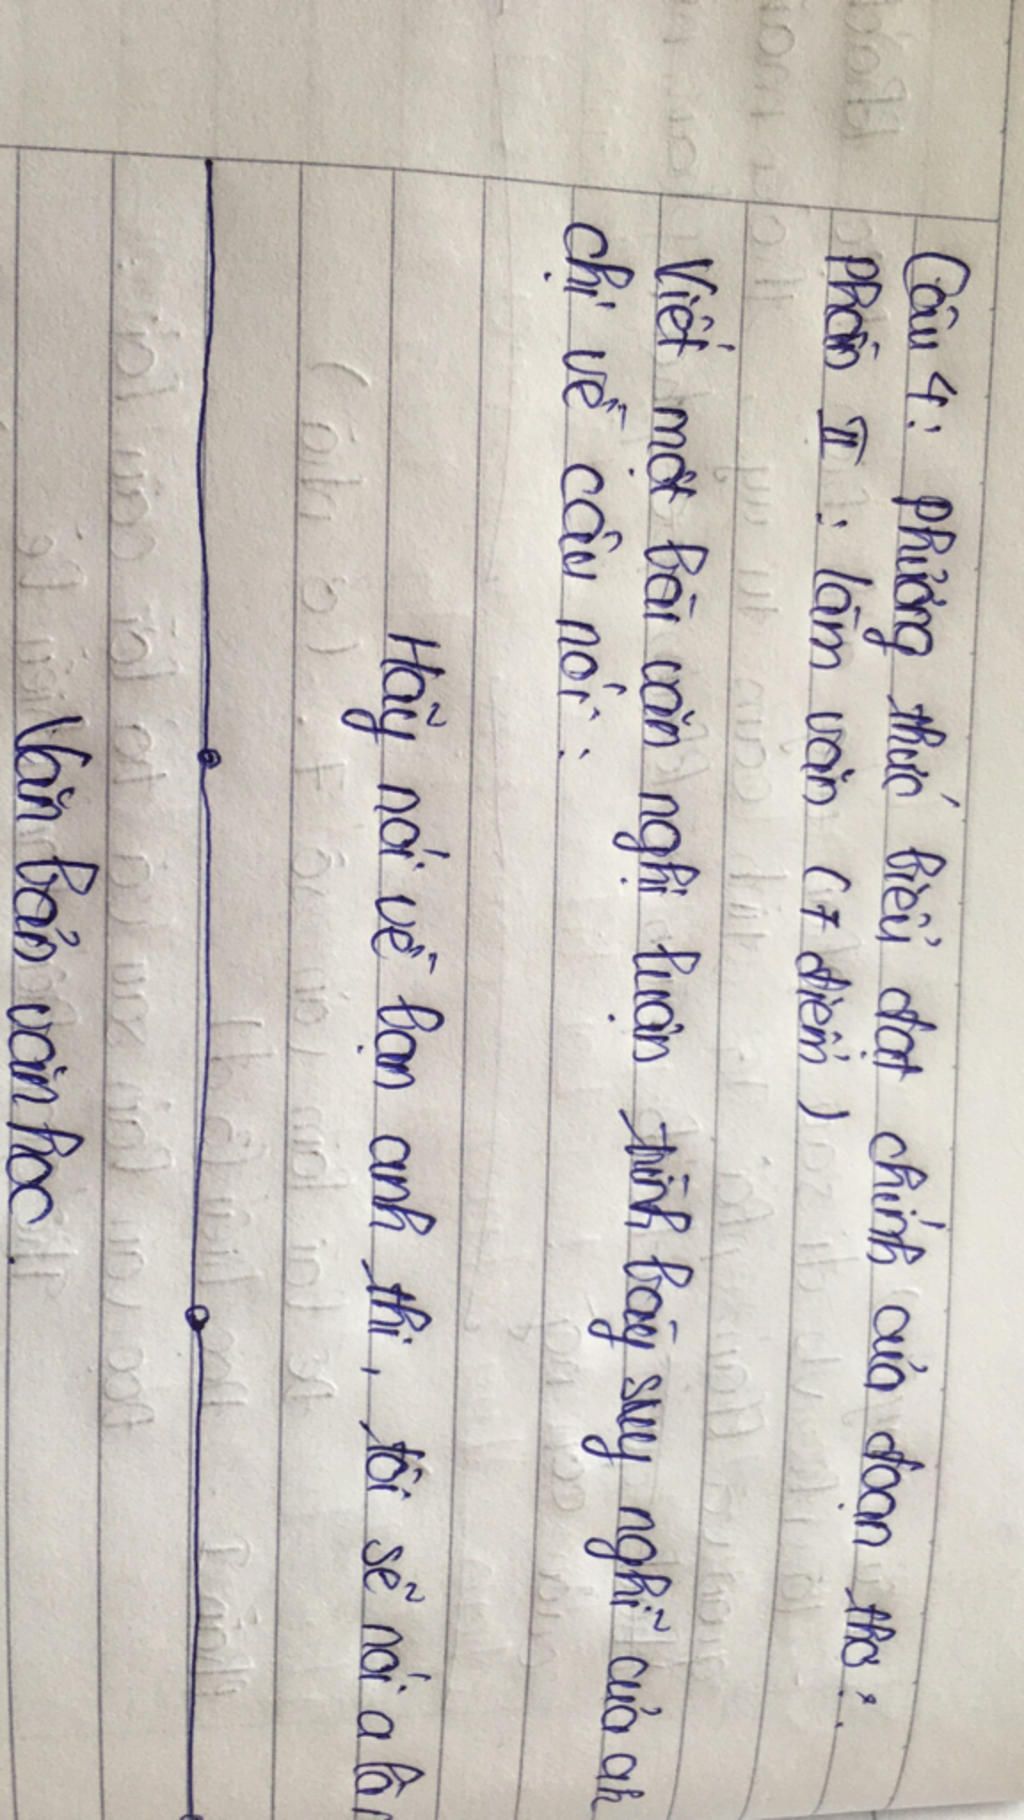 Câu 4: phương thức biểu đạt chính của đoạn thơ:
Phần II: làm văn (7 điểm)
Viết một bài văn nghị luận trình bày suy nghĩ của an
chị về câu nói:
Hãy nói về bạn anh thi, tôi sẽ nói a là
Văn bản văn học.